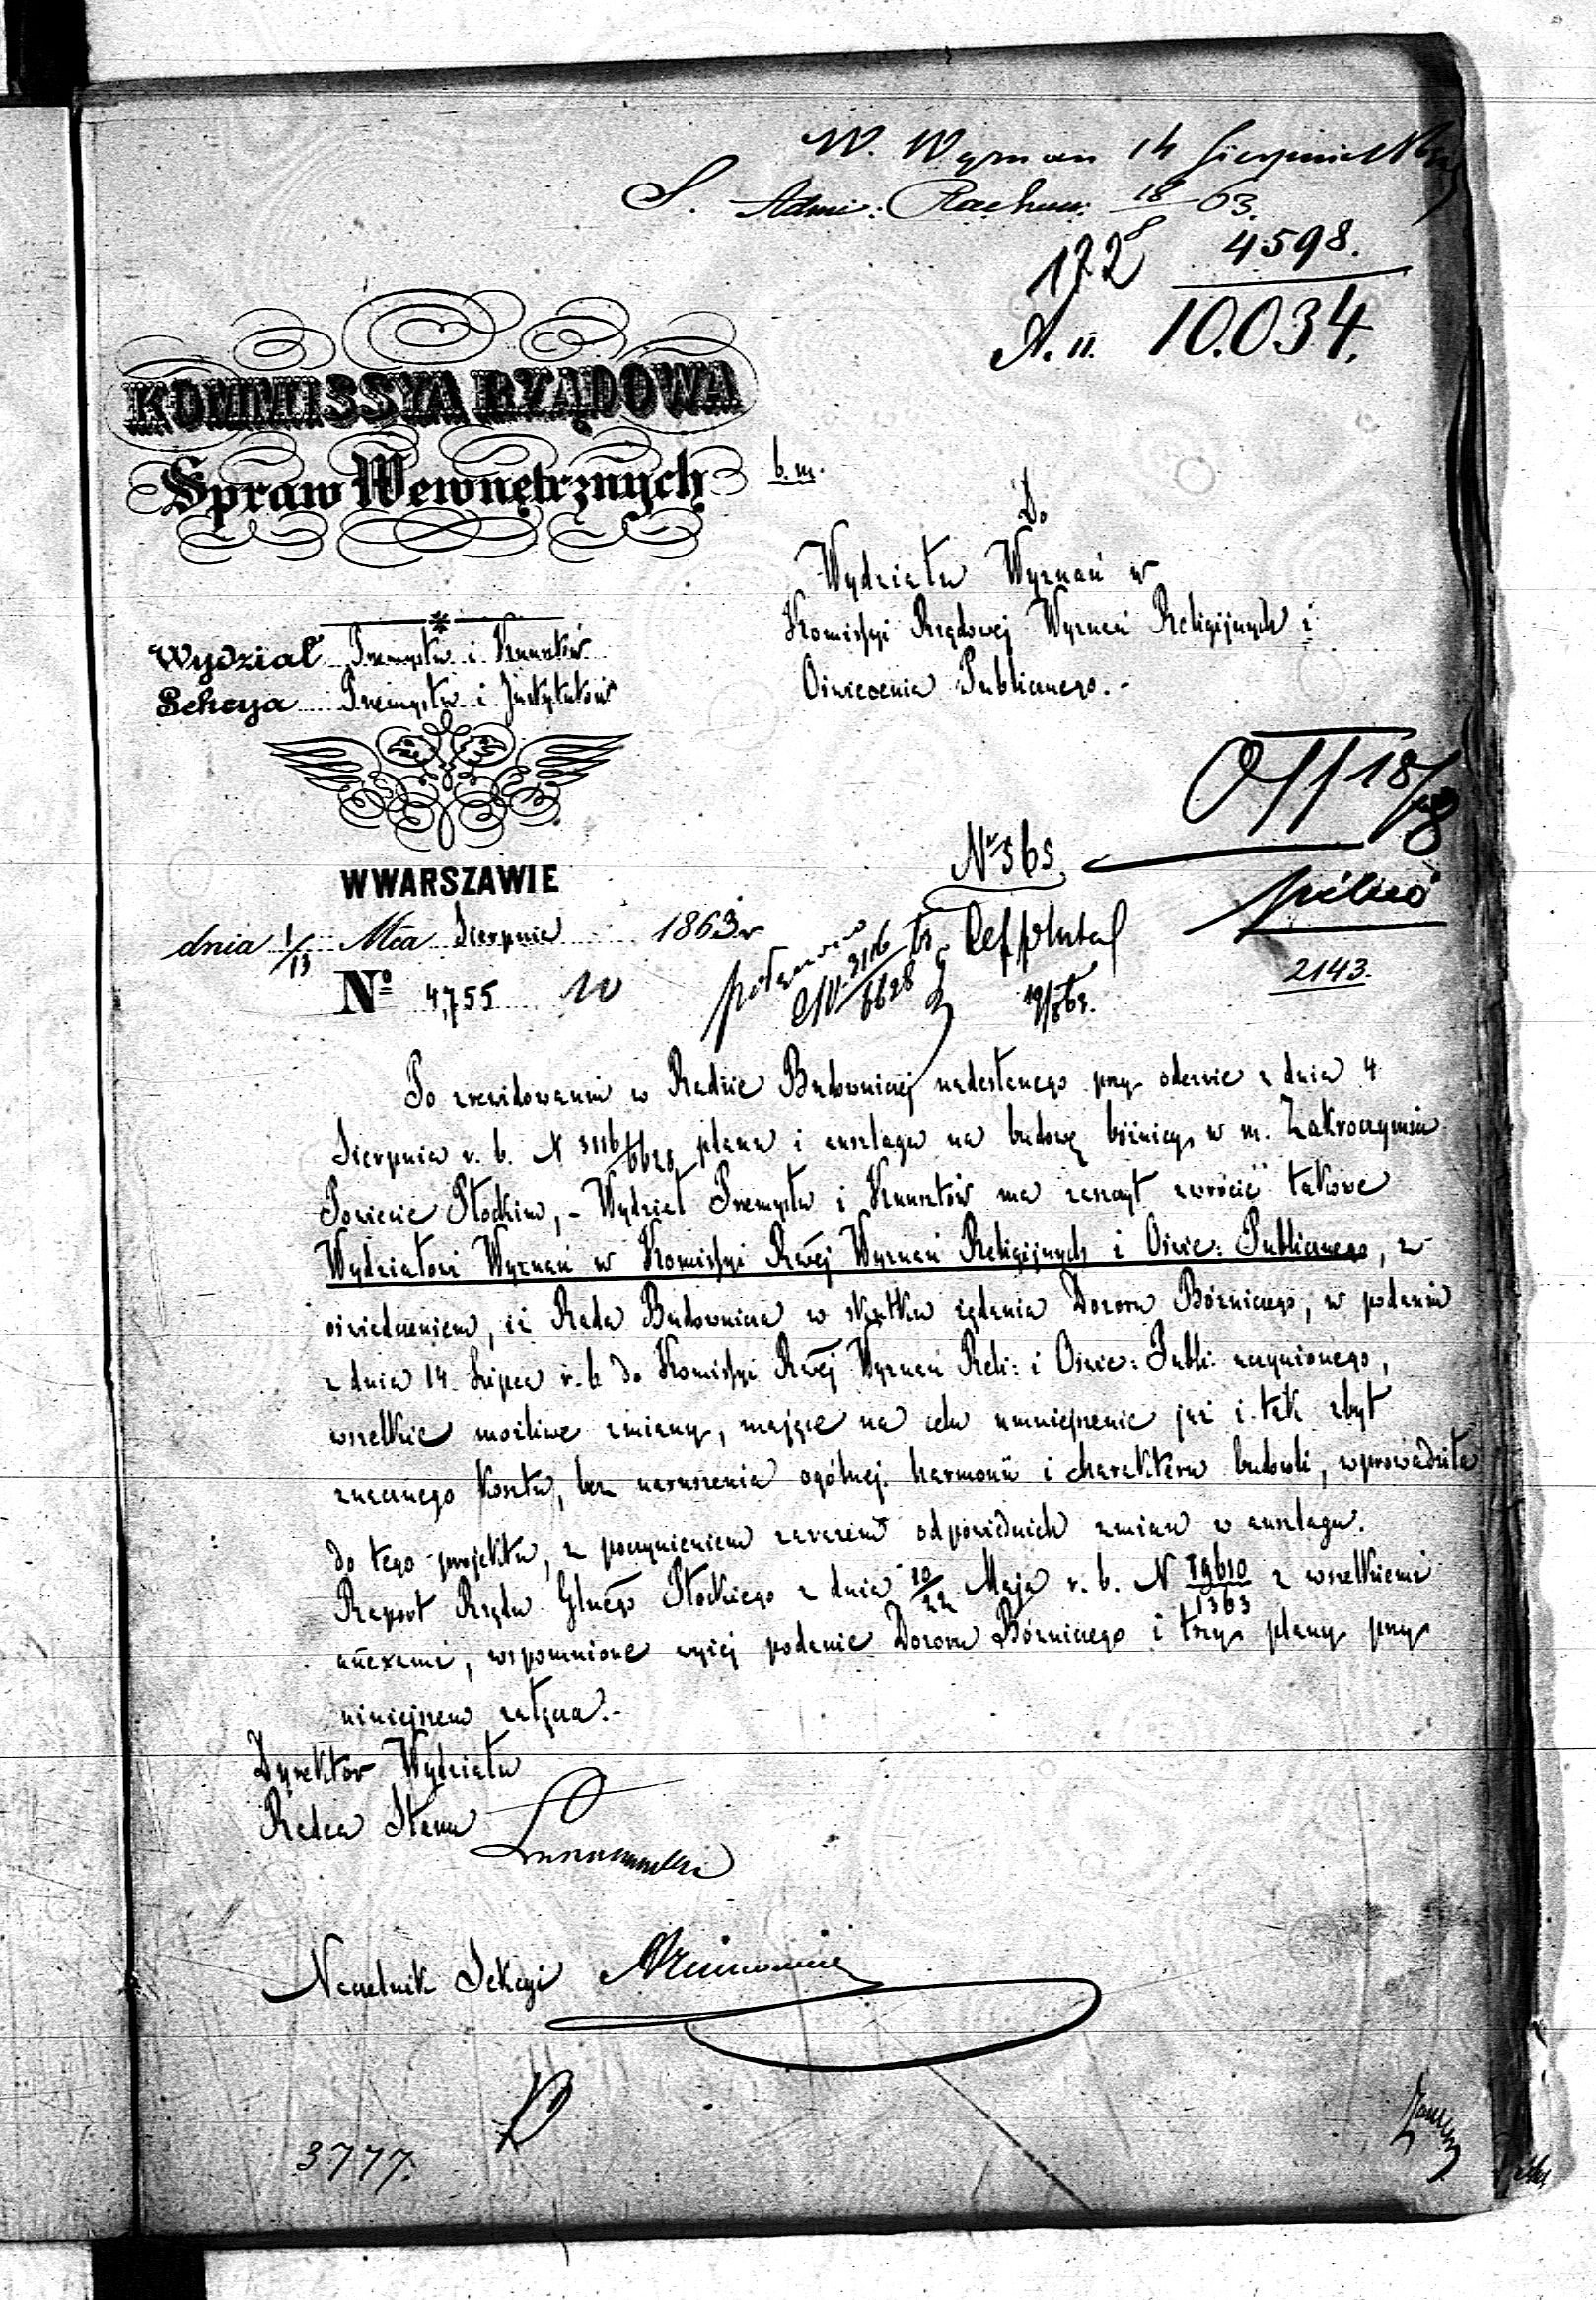 W. Wyznań 14 Sierpnia
S. Admi: Rachun. 18/8 63.
172 4598.
A. II. 10.034.
KOMMISSYA RZĄDOWA
Spraw Wewnętrznych
b. m.
Do
Wydziału Wyznań w
Komissyi Rządowej Wyznań Religijnych i
Oświecenia Publicznego.-
Wydział Przemysłu i Kunsztów
Sekcya Przemysłu i Instytutów
18/8
pilno
2143.
W WARSZAWIE
dnia 1/13 Mca Sierpnia 1863 r
Nº 4,755
Nr 565
3116/6628
19/8 63.
Po zrewidowaniu w Radzie Budowniczej nadesłanego przy odezwie z dnia 4
Sierpnia r. b. N 3116/6628 planu i anszlagu na budowę bóżnicy w m. Zakroczymiu
Powiecie Płockim, - Wydział Przemysłu i Kunsztów ma zaszczyt zwrócić takowe
Wydziałowi Wyznań w Komissyi Rwej Wyznań Religijnych i Oświe: Publicznego, z
oświadczeniem, iż Rada Budownicza w skutku żądania Dozoru Bóżniczego, w podaniu
z dnia 14 Lipca r. b. do Komissyi Rwej Wyznań Reli: i Oświe: Publi: uczynionego,
wszelkie możliwe zmiany, mające na celu zmniejszenie już i tak zbyt
znacznego kosztu, bez naruszenia ogólnej harmonii i charakteru budowli, wprowadziła
do tego projektu, z poczynieniem zarazem odpowiednich zmian w anszlagu.
Raport Rządu Glnego Płockiego z dnia 10/22 Maja r. b. N 19610/1363 z wszelkiemi
anexami, wspomnione wyżej podanie Dozoru Bóżniczego i trzy plany przy
niniejszem załącza.-
Dyrektor Wydziału
Radca Stanu
Naczelnik Sekcyi
3777.